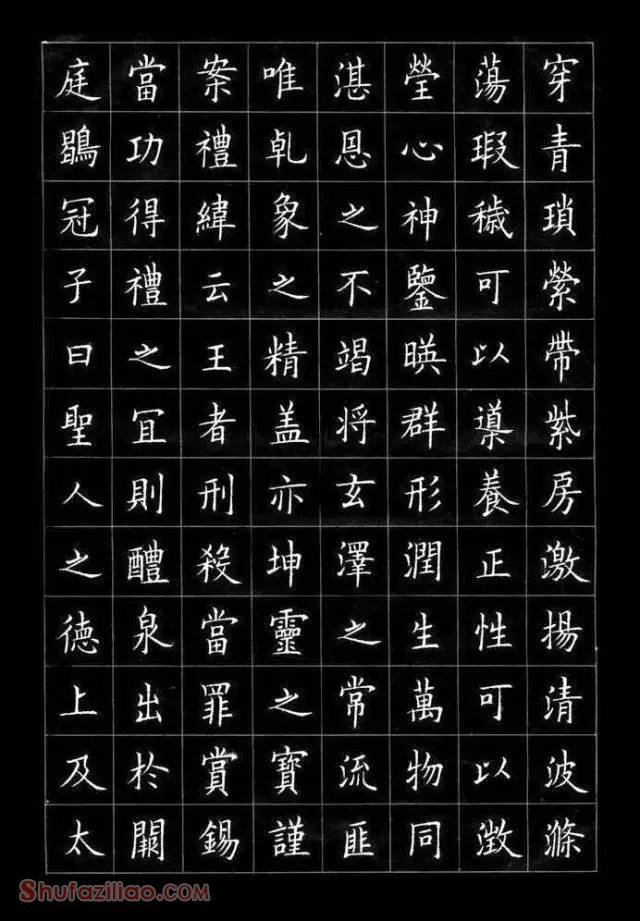 穿青瑣縈帶紫房激揚清波滌
蕩瑕穢可以導養正性可以澂
瑩心神鑒暎群形潤生萬物同
湛恩之不竭將玄澤之常流匪
唯乹象之精盖亦坤靈之寶謹
案禮緯云王者刑殺當罪賞錫
當功得禮之冝則醴泉出於闕
庭鶡冠子曰聖人之德上及太
Shufaziliao.com